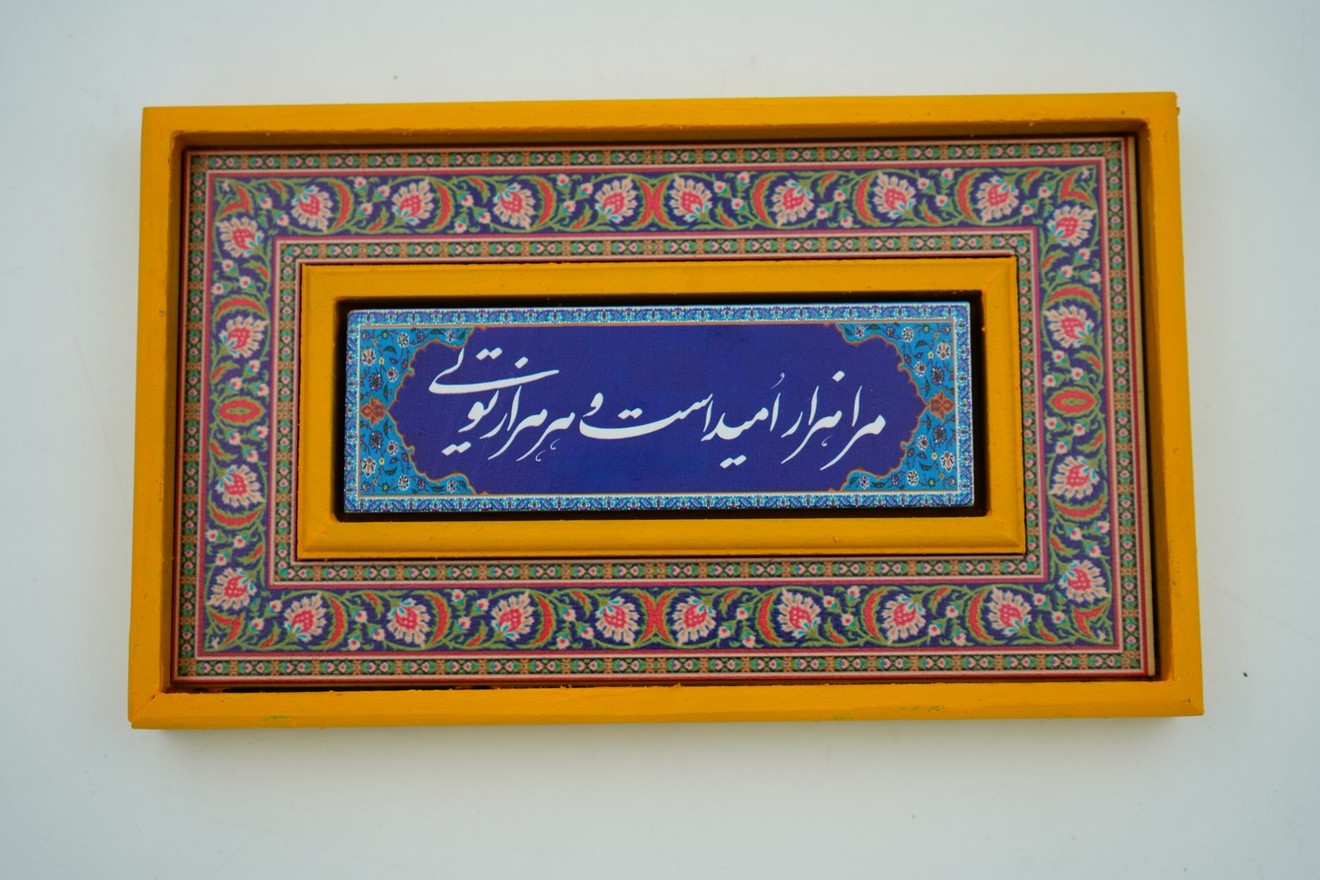 مرا هزار اُمید است و هر هزار تویی